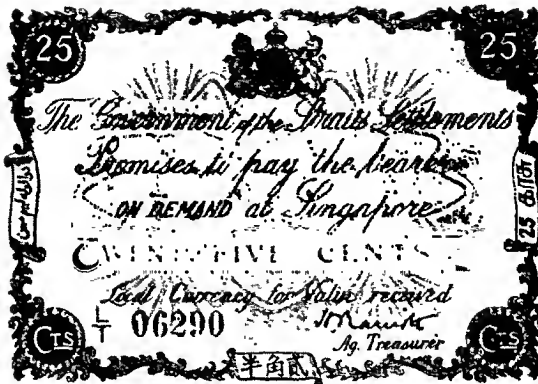 25 25
The Government of the Straits Settlements
Promises to pay the bearer
ON DEMAND at Singapore
TWENTY FIVE CENTS
Local Currency for Value received
L/T 06290
Ag. Treasurer
CTS CTS
半角貳
25 காசு